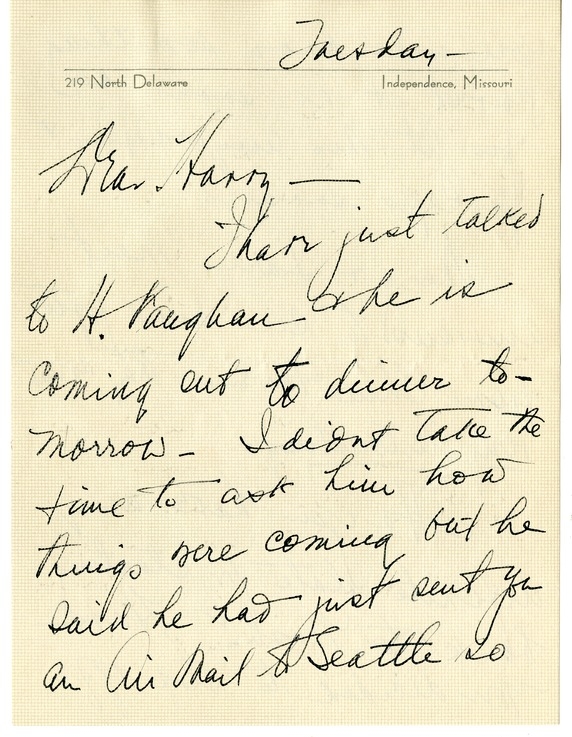 Tuesday —
219 North Delaware Independence, Missouri
Dear Harry —
I have just talked
to H. Vaughan & he is
coming out to dinner to-
morrow — I didn't take the
time to ask him how
things were coming but he
said he had just sent you
an Air Mail to Seattle so